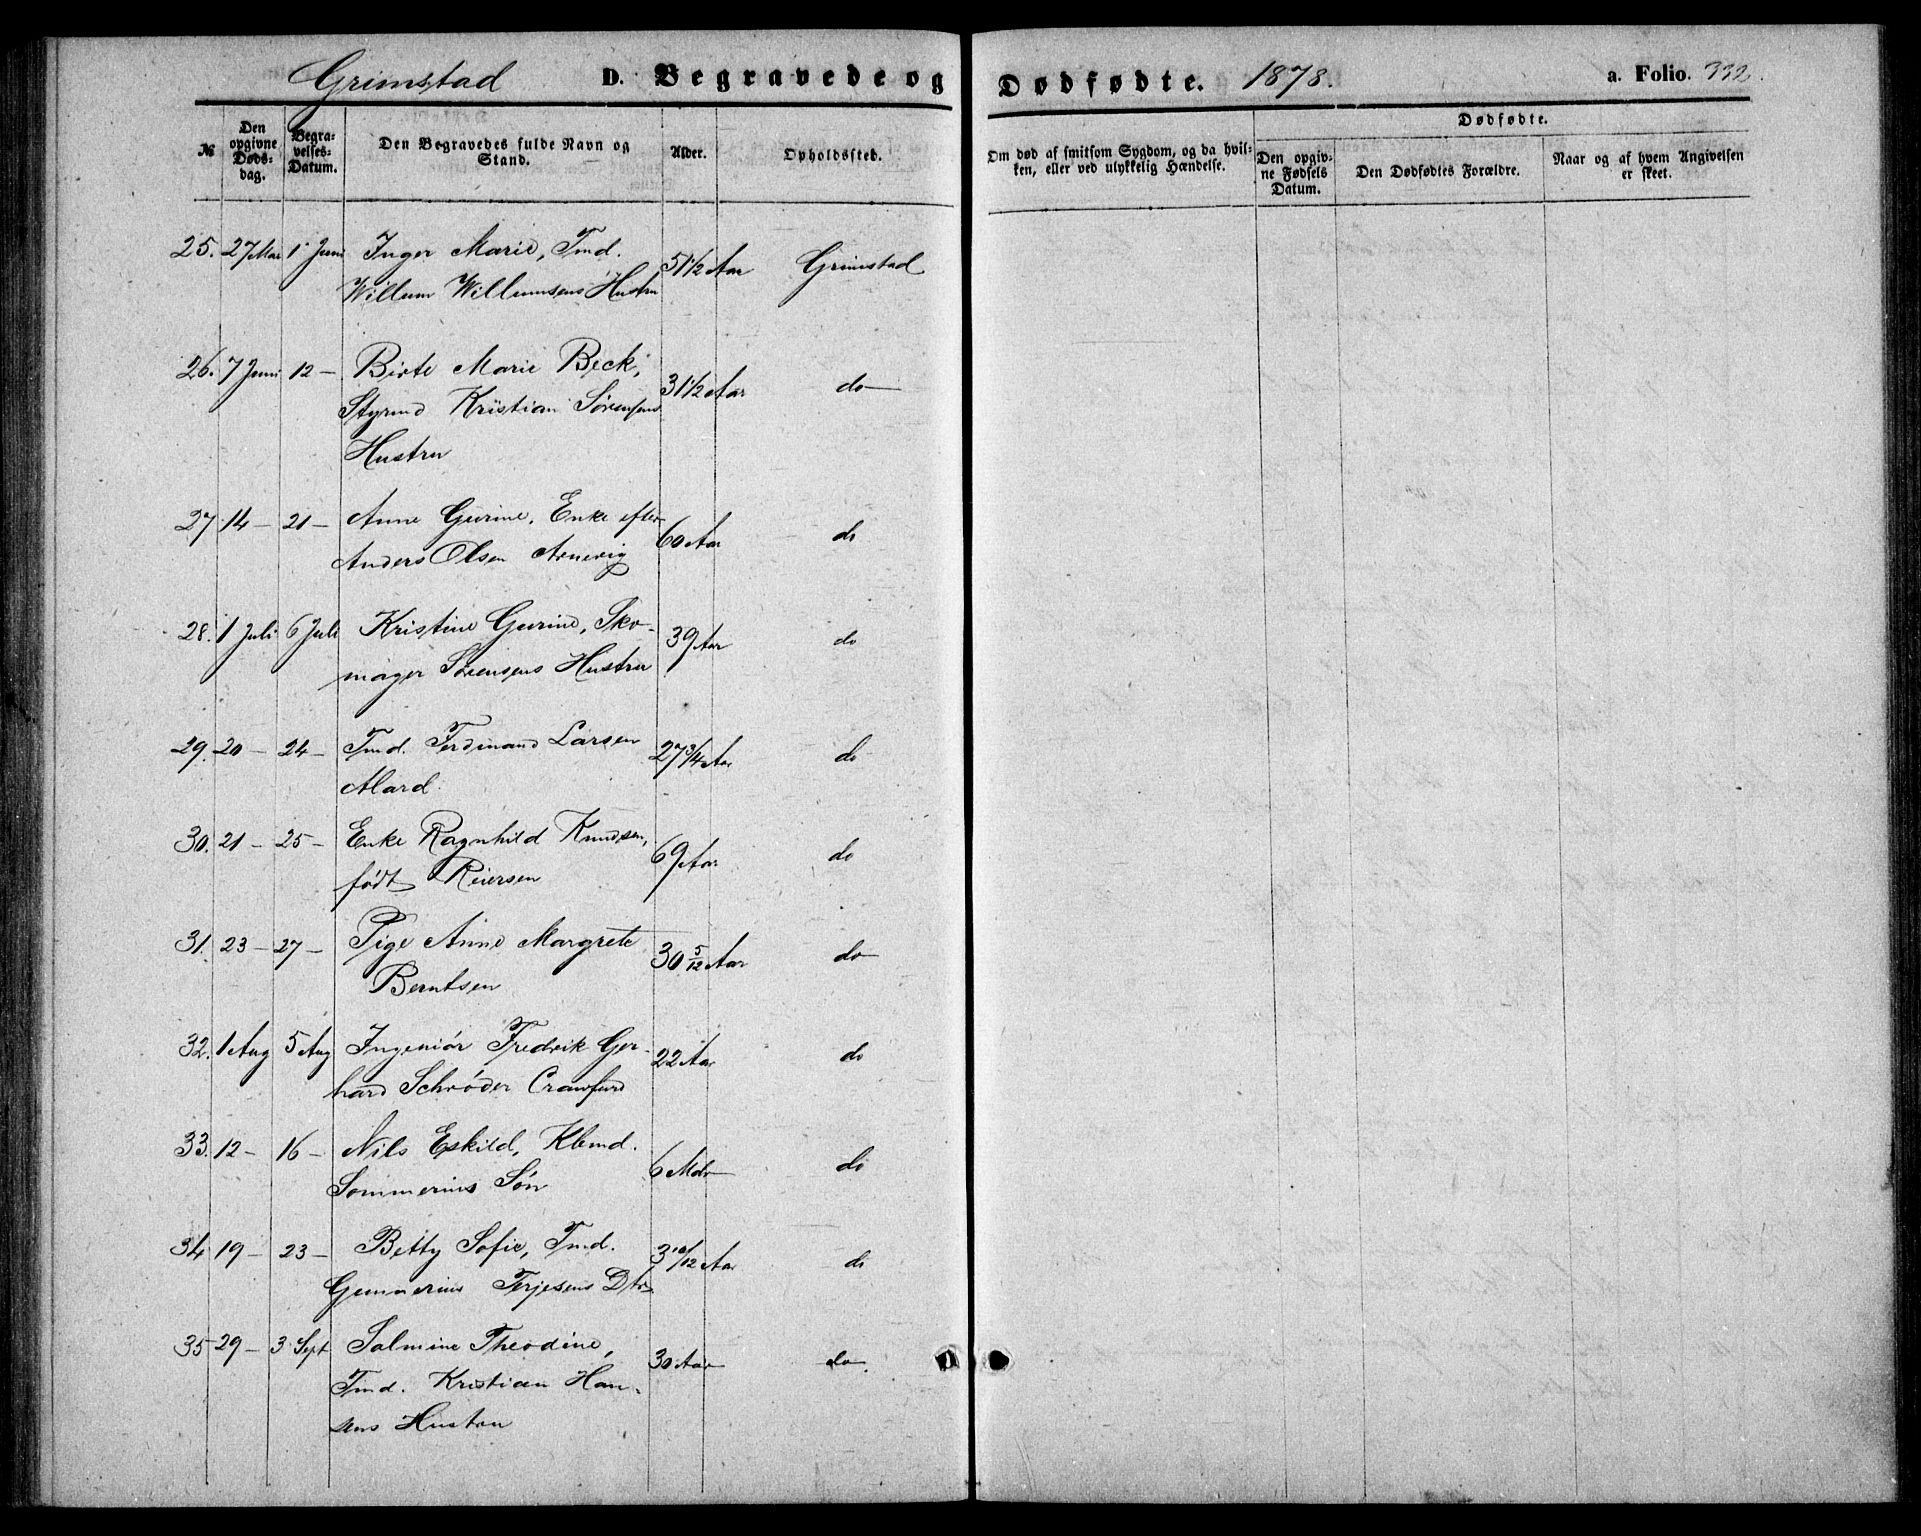 Grimstad D. Begravede og Dødfødte. 1878. a. Folio. 332.
№ Den opgivne Døds-dag. Begra-velses-Datum. Den Begravedes fulde Navn og Stand. Alder. Opholdssted. Om død af smitsom Sygdom, og da hvil-ken, eller ved ulykkelig Hændelse. Dødfødte. Den opgiv-ne Fødsels Datum. Den Dødfødtes Forældre. Naar og af hvem Angivelsen er skeet.
25. 27 Mai 1 Juni Inger Marie, Tmd. 51 1/2 Aar Grimstad
Willum Willumsens Hustru
26. 7 Juni 12 — Birte Marie Beck, 31 1/2 Aar do
Styrmd Kristian Sørensens
Hustru
27 14 — 21 — Anne Gurine, Enke efter 60 Aar do
Anders Olsen Arnevig
28. 1 Juli 6 Juli Kristine Gurine, Sko- 39 Aar do
mager Sørensens Hustru
29. 20 — 24 — Tmd. Ferdinand Larsen 27 3/4 Aar do
Alard.
30. 21 — 25 — Enke Ragnhild Knudsen, 69 Aar do
født Reiersen
31. 23 — 27 — Pige Anne Margrete 30 5/12 Aar do
Berntsen
32. 1 Aug 5 Aug Ingeniør Fredrik Ger- 22 Aar do
hard Schrøder Crawfurd
33. 12 — 16 — Nils Eskild, Kbmd. 6 Mdr do
Sommerius Søn
34 19 — 23 — Betty Sofie, Tmd. 3 10/12 Aar do
Gunnerius Terjesens Dtr.
35 29 — 3 Sept Salmine Theodine, 30 Aar do.
Tmd. Kristian Han-
sens Hustru